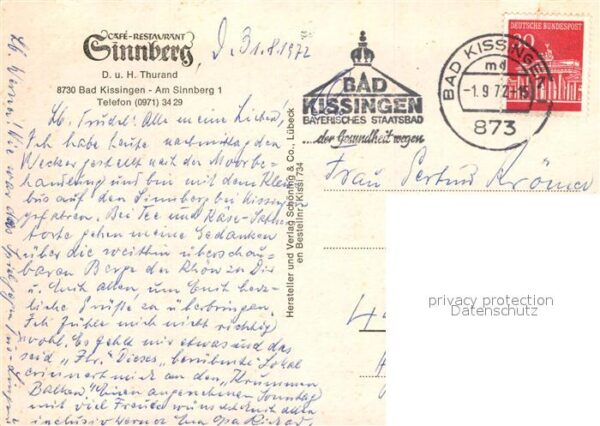 CAFÉ-RESTAURANT
Sinnberg
D. u. H. Thurand
8730 Bad Kissingen - Am Sinnberg 1
Telefon (0971) 34 29
D. 31.8.1972
Lb. Trudel! Alle meine Lieben,
Ich habe heute nachmittag den
Wecker gestellt nach der Moorbe-
handlung und bin mit dem Kleinbus
bis auf den Sinnberg bei Kissingen
gefahren. Bei Tee und Käse-Sahne
torte gehen meine Gedanken
über die weithin überschau-
baren Berge der Rhön zu Dir
u. Euch allen, um Euch herz-
liche Grüße zu überbringen.
Ich fühle mich nicht richtig
wohl. Es fehlt mir etwas und das
seid „Ihr". Dieses „berühmte" Lokal
erinnert mich an den „Krummen
Balken". Einen angenehmen Sonntag
mit viel Freude wünscht Euch allen
inclusiv Werner Opa Richard
Lb. Werner! Wie war das Spiel
BAD
KISSINGEN
BAYERISCHES STAATSBAD
...der Gesundheit wegen
BAD KISSINGEN
md
-1.9.72-15
873
DEUTSCHE BUNDESPOST
30
Frau Gertrud Krömer
Hersteller und Verlag Schöning & Co., Lübeck
en Bestellnr. Kissi 734
privacy protection
Datenschutz